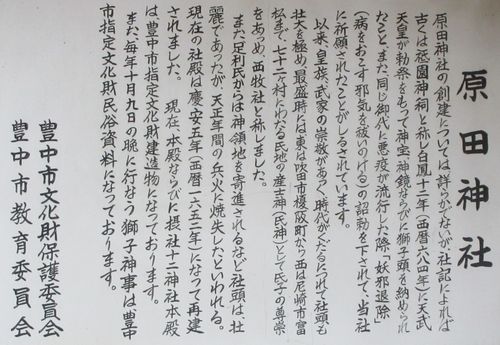 原田神社
原田神社の創建については詳らかでないが社記によれば
古くは祗園神祠と称し白鳳十二年(西暦六八四年)に天武
天皇が勅祭をもって神宝、神鏡ならびに獅子頭を納められ
たこと、また同じ御代に悪疫が流行した際「妖邪退除」
(病をおこす邪気を祓いのける)の詔勅を下されて、当社
に祈願されたことがしるされています。
以来、皇族、武家の崇敬があつく、時代がくだるにれて社頭も
壮大を極め、最盛時には東は吹田市榎阪町から西は尼崎市富
松まで、七十二ヶ村にわたる氏地の産土神(氏神)として氏子の尊崇
をあつめ西牧社と称しました。
また足利氏からは神領地を寄進されるなど、社頭は、壮
麗であったが、天正年間の兵火に焼失したといわれる。
現在の社殿は慶安五年(西暦一六五二年)になって再建
されました。現在、本殿ならびに摂社十二神社本殿
は豊中市指定文化財建造物になっております。
また、毎年十月九日の晩に行なう獅子神事は豊中
市指定文化財民俗資料になっております。
豊中市文化財保護委員会
豊中市教育委員会